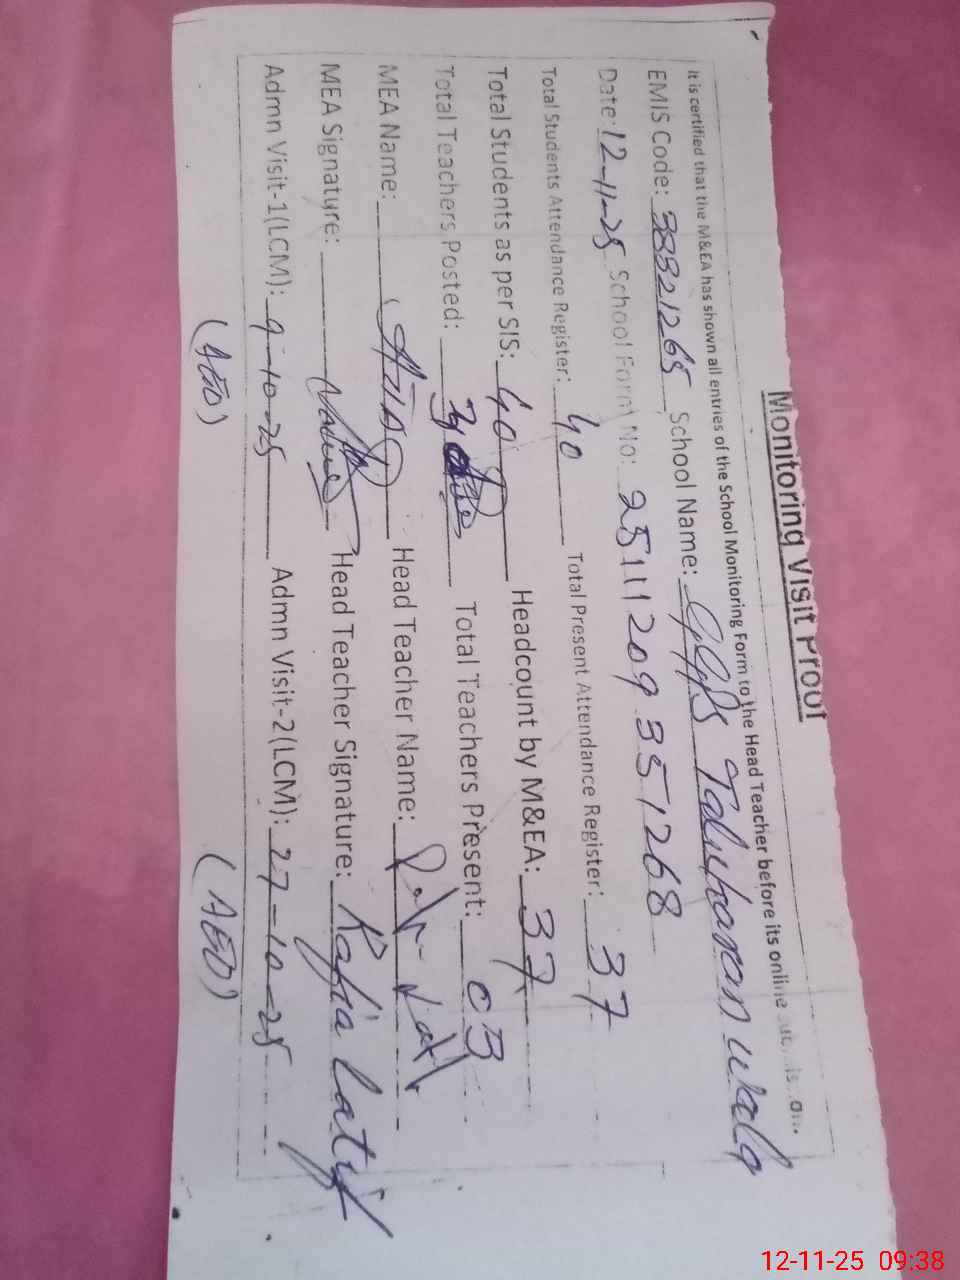 Monitoring Visit Proof
It is certified that the M&EA has shown all entries of the School Monitoring Form to the Head Teacher before its online
EMIS Code: 38321265 School Name: GGPS Talukaran wala
Date: 12-11-25 School Form No: 25111209351268
Total Students Attendance Register: 40 Total Present Attendance Register: 37
Total Students as per SIS: 40 Headcount by M&EA: 37
Total Teachers Posted: Total Teachers Present: 03
MEA Name: Head Teacher Name:
MEA Signature: Head Teacher Signature: Rafia Latif
Admn Visit-1(LCM): 9-10-25 Admn Visit-2(LCM): 27-10-25
(AEO) (AEO)
12-11-25 09:38